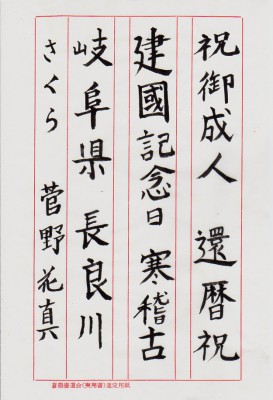 祝御成人 還暦祝
建國記念日 寒稽古
岐阜県 長良川
さくら 菅野花真